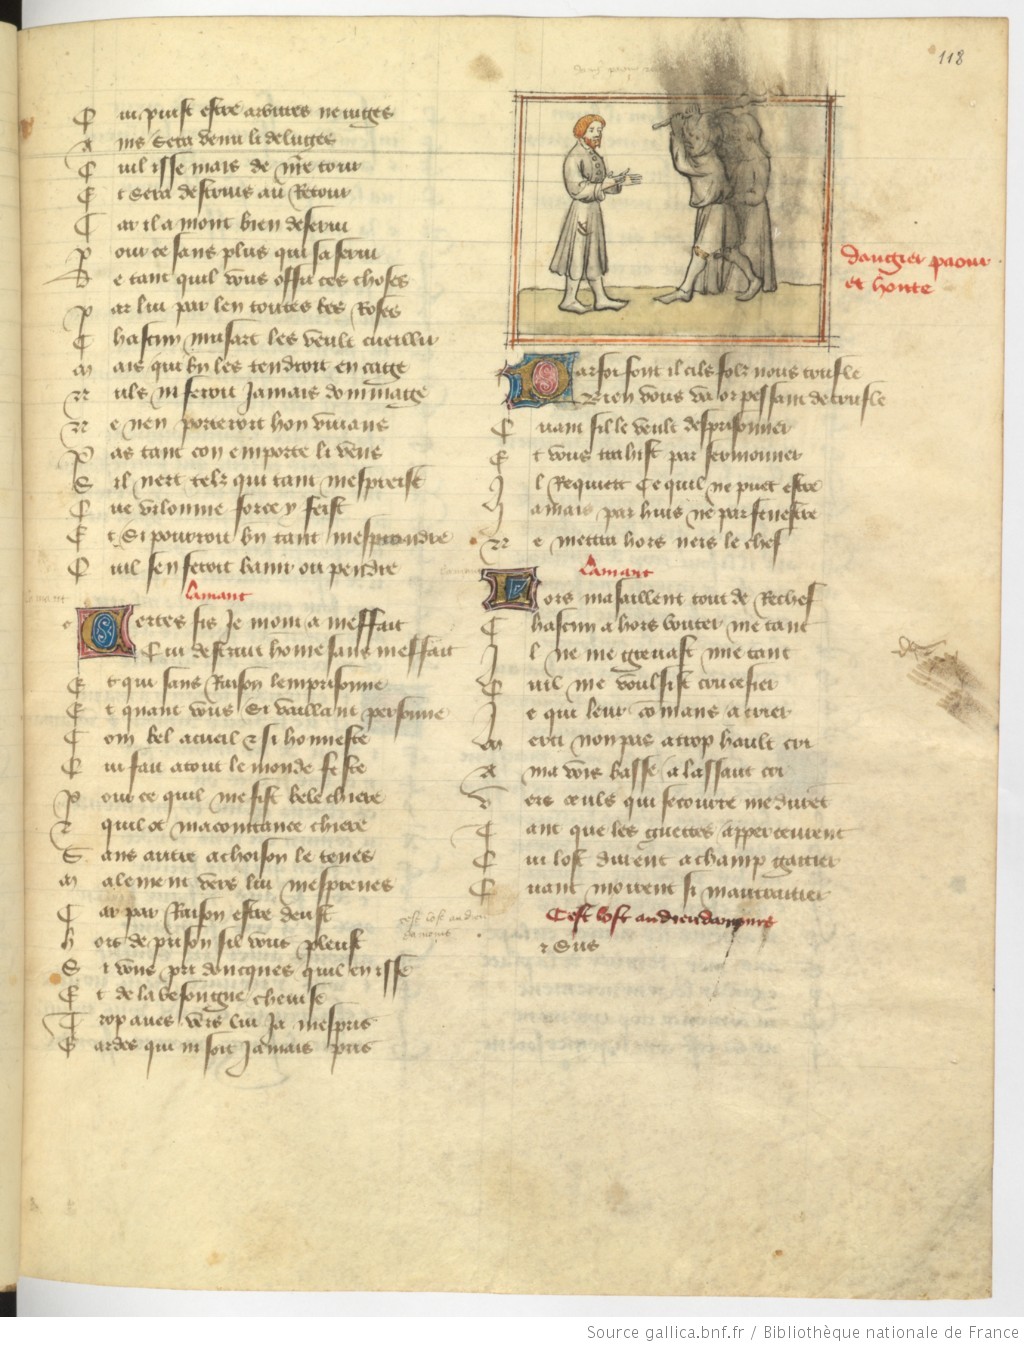 118
Cui puist estre arbitres ne iuges
Ains sera venu li deluges
Quil isse mais de nr̃e tour
Et sera destruis au Retour
Car il a mont bien deserui
Pour ce sans plus qui sa serui
De tant quil vous offri ces choses
Par lui par len toutes les Roses
Chascun musart les veult cueillir
Mais qui bn̄ les tendroit en caige
Nuls ni feroit Jamais dommaige
Ne nen porteroit hon viuans
Pas tant con emporte li vens
Sil nert telz qui tant mesprèist
Que vilonnie force y feist
Et Si pourroit bn̄ tant mesprendre
Quil sen feroit banir ou pendre
Lamant
Certes fis Je mont a meffait
Qui destruit home sans meffait
Et qui sans Raison lemprisonne
Et quant vous Si vaillant personne
Com bel acueil et si honneste
Qui fait a tout le monde feste
Pour ce quil me fist bele chiere
Et quil ot macointance chiere
Sans autre achoison le tenes
Malement vers lui mesprenes
Car par Raison estre deust
Hors de prison sil vous pleust
Si vous pri doncques quil en isse
Et de la besongne cheuisse
Trop aues vers lui Ja mespris
Gardes qui ni soit Jamais pris
dangier paour
et honte
Par foi font il cils folz nous trufle
Bien vous va or pessant de trufle
Quant sil le veult desprisonner
Et vous trahist par sermonner
Il Requiert Ce quil ne puet estre
Jamais par huis ne par fenestre
Ne mettra hors neis le chef
Lamant
Lors masaillent tout de Rechef
Chascun a hors bouter me tant
Il ne me greuast mie tant
Quil me voulsist crucefier
Je qui leur cōmans a crier
Merci non pas a trop hault cri
A ma vois basse a lassaut cri
Vers ceuls qui secourre me durēt
Tant que les guettes apperceurent
Qui lost durent a champ gaitier
Quant moirent si mautraitier
Cest lost au dieu damours
et Sus